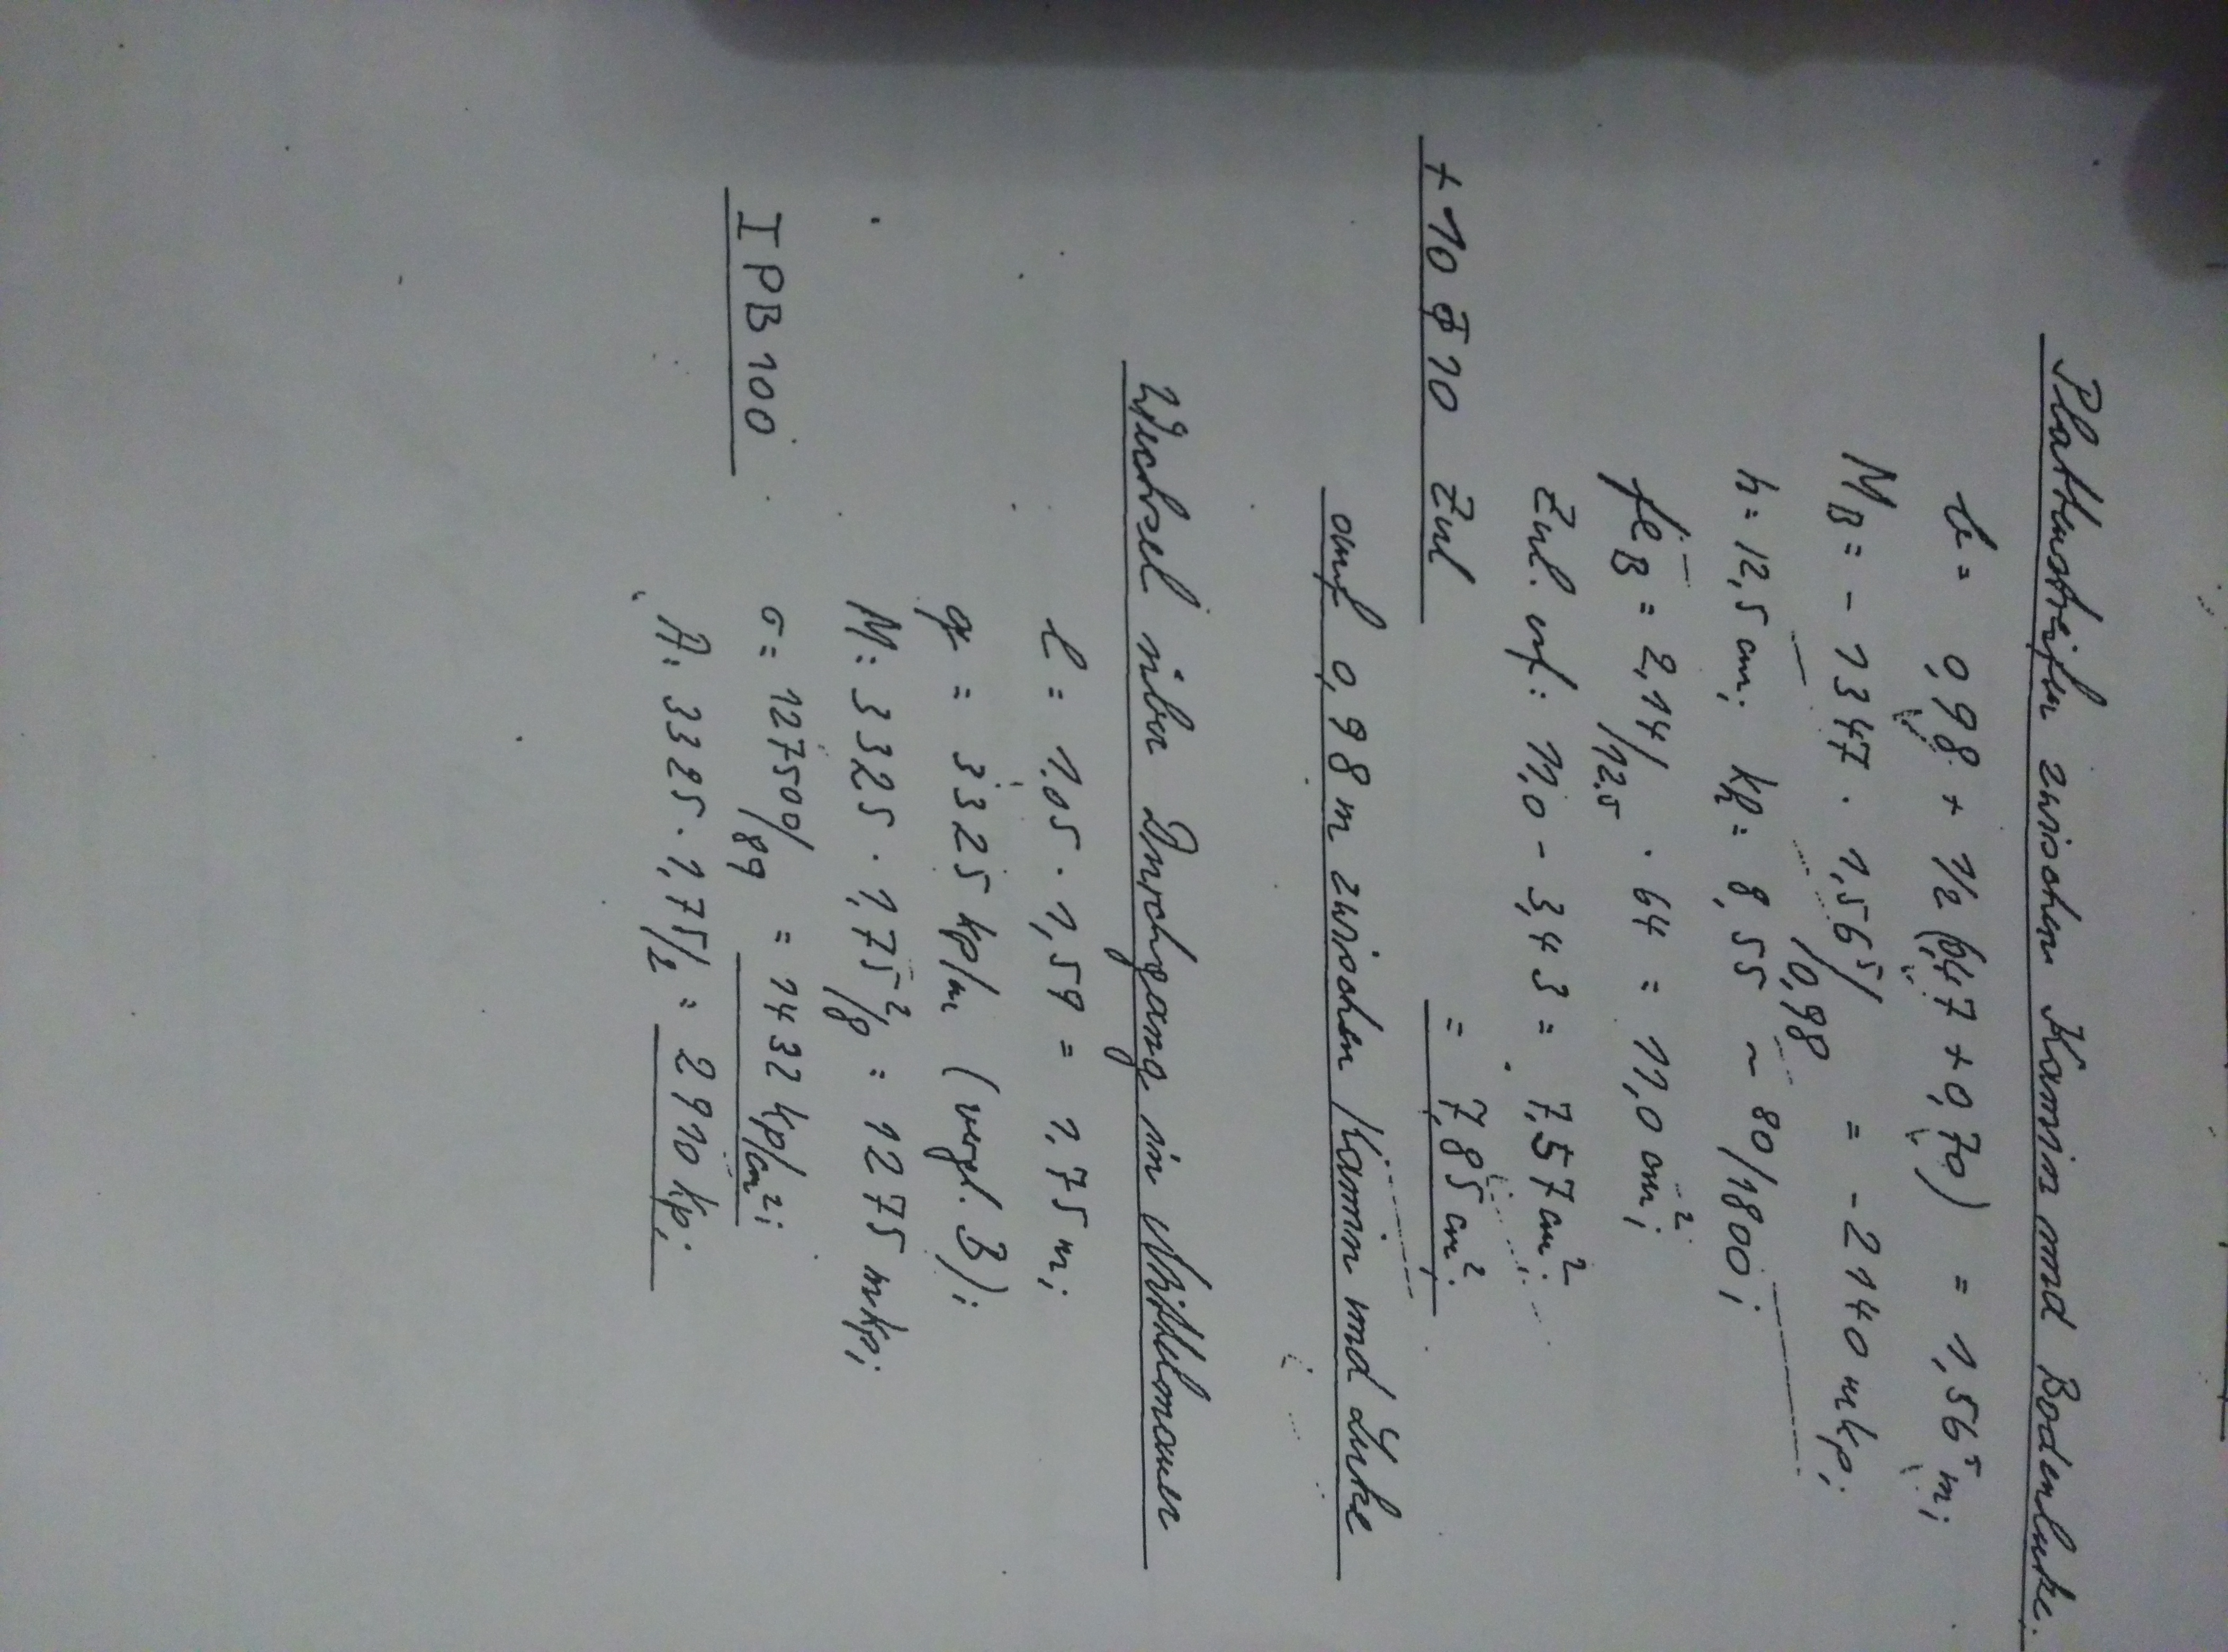 Plattenstreifen zwischen Kamin und Bodenluke.
b = 0,98 + 1/2 (0,47 + 0,70) = 1,56⁵ m;
M_B = - 1347 · 1,56⁵/0,98 = - 2140 mkp;
h = 12,5 cm; k_h = 8,55 ~ 80/1800;
fe_B = 2,14/12.5 · 64 = 11,0 cm²;
Zul. erf: 11,0 - 3,43 = 7,57 cm²;
+ 10 ϕ 10 Zul = 7,85 cm²;
auf 0,98 m zwischen Kamin und Luke
Wechsel über Durchgang in Mittelmauer
l = 1,05 · 1,59 = 1,75 m;
q = 3325 kp/m (vergl. B);
M: 3325 · 1,75²/8 = 1275 mkp;
I PB 100 σ = 127500/89 = 1432 kp/cm²;
A: 3325 · 1,75/2 = 2910 kp;